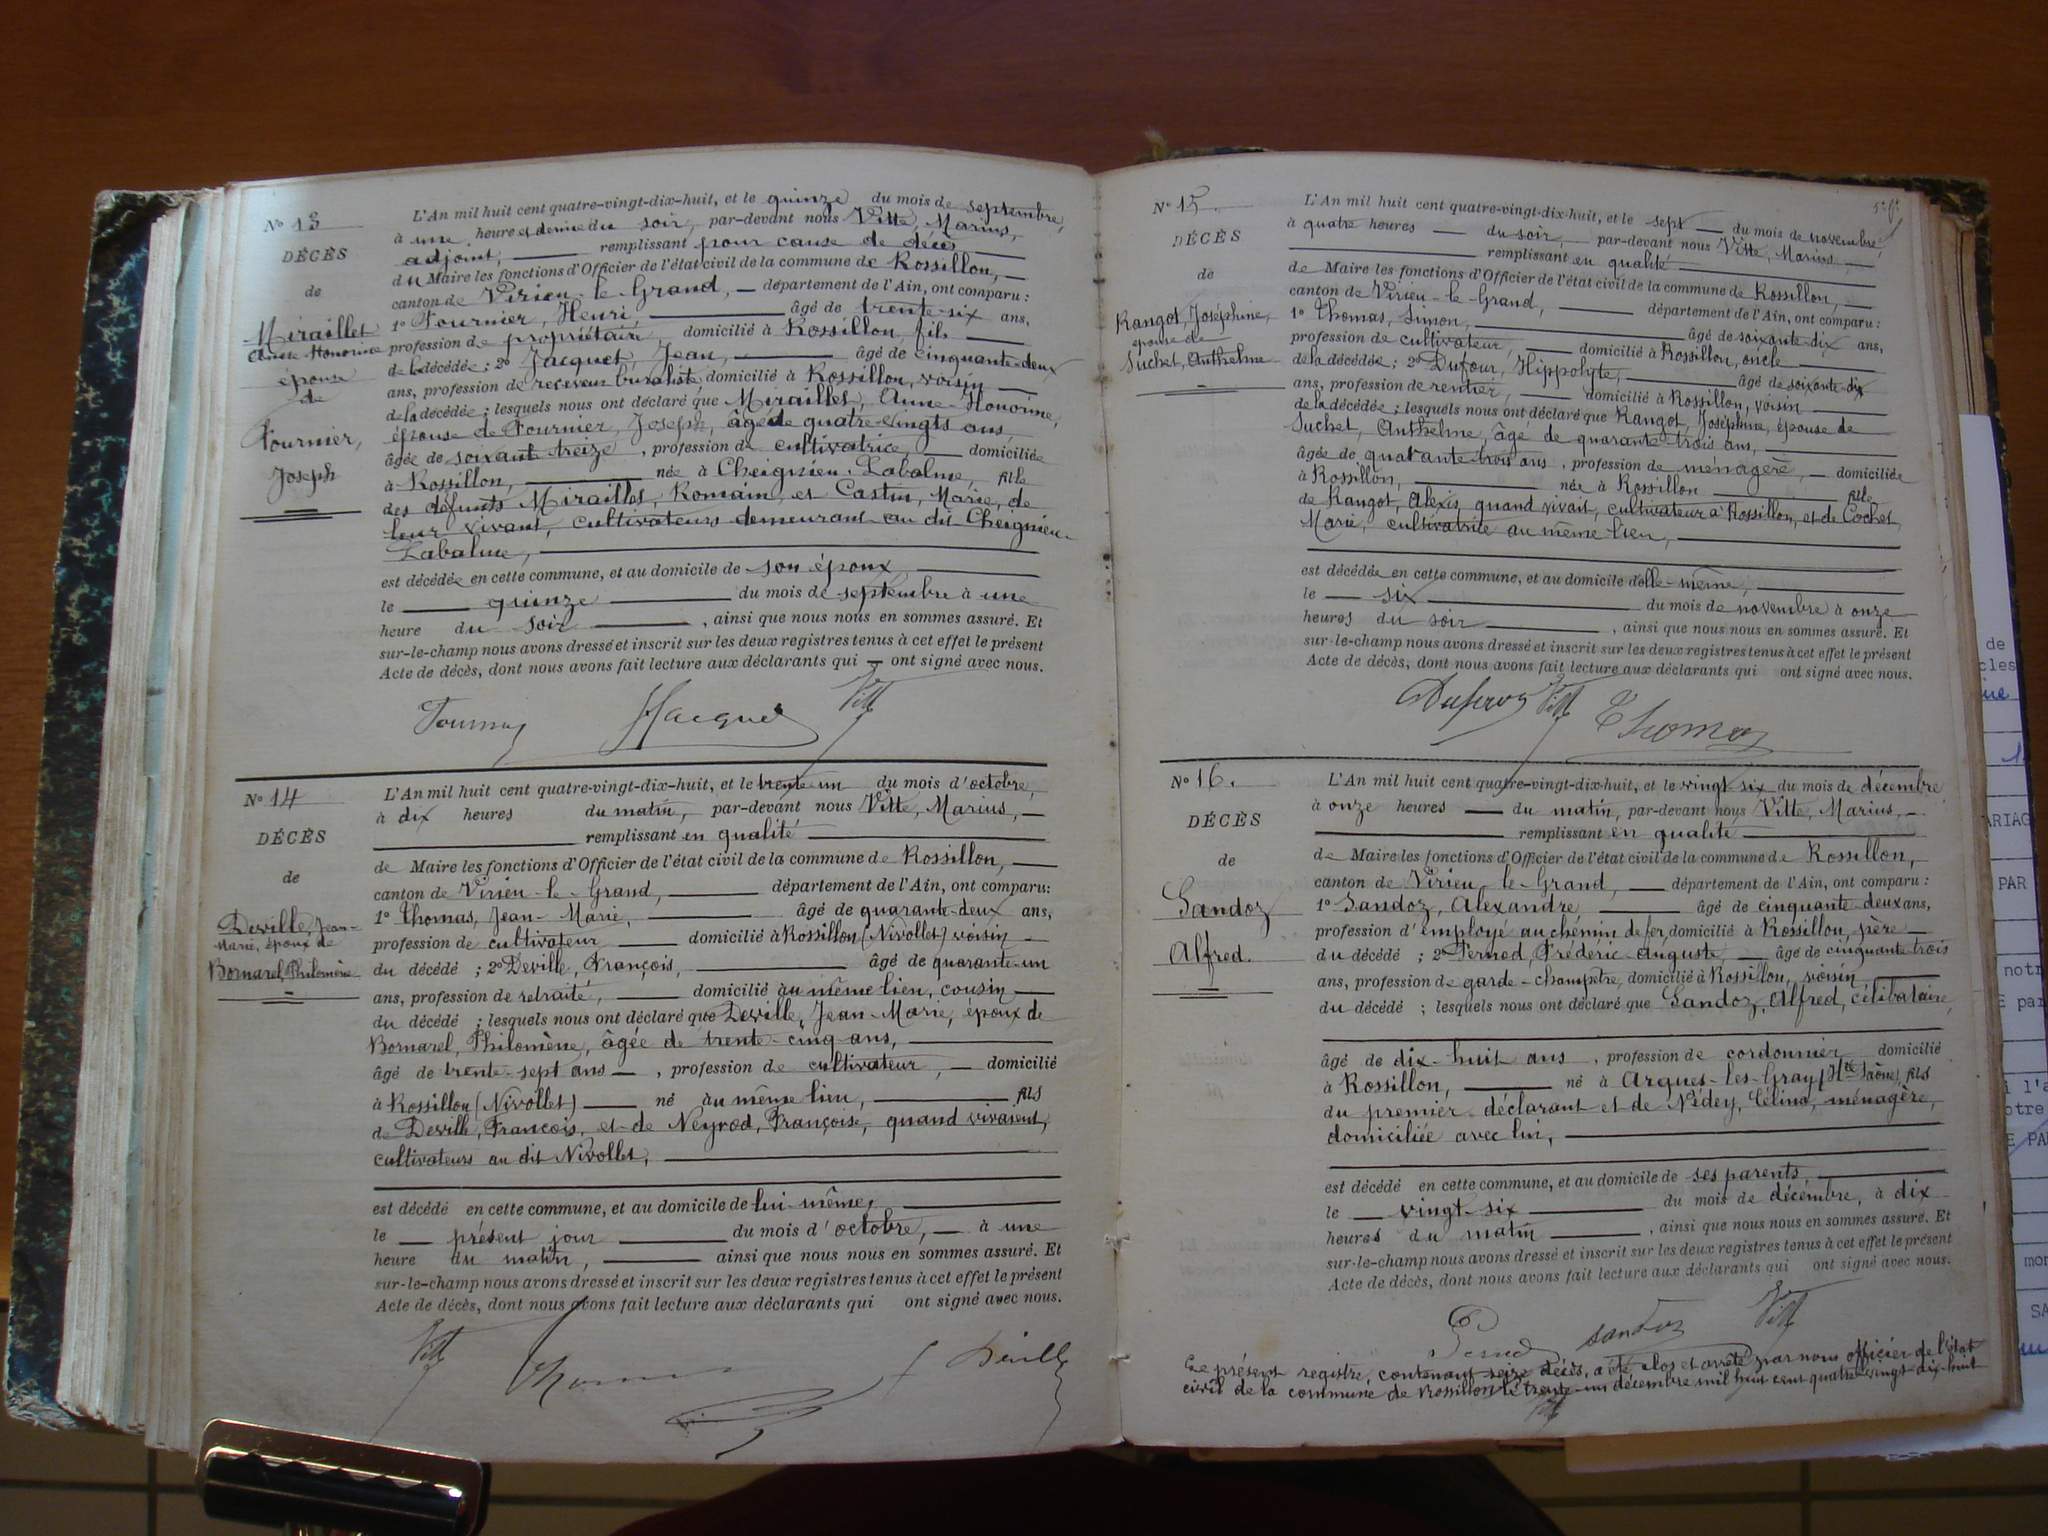 Nº 13
DÉCÈS
de
Miraillet
Anne Honorine
épouse
de
Fournier,
Joseph
L'An mil huit cent quatre-vingt-dix-huit, et le quinze du mois de septembre,
à une heure et demie du soir, par-devant nous Vitte, Marius,
adjoint, remplissant pour cause de décès
du Maire les fonctions d'Officier de l'état civil de la commune de Rossillon,
canton de Virieu-le-Grand, département de l'Ain, ont comparu :
1º Fournier, Henri, âgé de trente-six ans,
profession de propriétaire domicilié à Rossillon, fils
de la décédée ; 2º Jacquet, Jean, âgé de cinquante-deux
ans, profession de receveur buraliste, domicilié à Rossillon, voisin
de la décédée ; lesquels nous ont déclaré que Miraillet, Anne-Honorine,
épouse de Fournier, Joseph, âgé de quatre-vingts ans
âgée de soixante treize, profession de cultivatrice, domiciliée
à Rossillon, née à Cheignieu-Labalme fille
des défunts Miraillet, Romain, et Castin, Marie, de
leur vivant, cultivateurs demeurant au dit Cheignieu-
Labalme,
est décédée en cette commune, et au domicile de son époux
le quinze du mois de septembre à une
heure du soir, ainsi que nous nous en sommes assuré. Et
sur-le-champ nous avons dressé et inscrit sur les deux registres tenus à cet effet le présent
Acte de décès, dont nous avons fait lecture aux déclarants qui ont signé avec nous.
Fournier Jacquet Vitte
Nº 14
DÉCÈS
de
Deville, Jean-
Marie, époux de
Bornarel, Philomène
L'An mil huit cent quatre-vingt-dix-huit, et le trente-un du mois d'octobre,
à dix heures du matin, par-devant nous Vitte, Marius,
remplissant en qualité
de Maire les fonctions d'Officier de l'état civil de la commune de Rossillon,
canton de Virieu-le-Grand, département de l'Ain, ont comparu :
1º Thomas, Jean-Marie, âgé de quarante-deux ans,
profession de cultivateur domicilié à Rossillon (Nivollet) voisin
du décédé ; 2º Deville, François, âgé de quarante-un
ans, profession de retraité, domicilié au même lieu, cousin
du décédé ; lesquels nous ont déclaré que Deville, Jean-Marie, époux de
Bornarel, Philomène, âgée de trente-cinq ans,
âgé de trente-sept ans, profession de cultivateur, domicilié
à Rossillon (Nivollet) né au même lieu, fils
de Deville, François, et de Neyrod, Françoise, quand vivaient,
cultivateurs au dit Nivollet,
est décédé en cette commune, et au domicile de lui-même,
le présent jour du mois d'octobre, à une
heure du matin, ainsi que nous nous en sommes assuré. Et
sur-le-champ nous avons dressé et inscrit sur les deux registres tenus à cet effet le présent
Acte de décès, dont nous avons fait lecture aux déclarants qui ont signé avec nous.
Vitte Thomas Deville
Nº 15
DÉCÈS
de
Rangot, Joséphine,
épouse de
Suchet, Anthelme
L'An mil huit cent quatre-vingt-dix-huit, et le sept du mois de novembre,
à quatre heures du soir, par-devant nous Vitte, Marius
remplissant en qualité
de Maire les fonctions d'Officier de l'état civil de la commune de Rossillon,
canton de Virieu-le-Grand, département de l'Ain, ont comparu :
1º Thomas, Simon, âgé de soixante-dix ans,
profession de cultivateur, domicilié à Rossillon, oncle
de la décédée ; 2º Dufour, Hippolyte, âgé de soixante-dix
ans, profession de rentier, domicilié à Rossillon, voisin
de la décédée ; lesquels nous ont déclaré que Rangot, Joséphine, épouse de
Suchet, Anthelme, âgé de quarante-trois ans,
âgée de quarante-trois ans, profession de ménagère, domiciliée
à Rossillon, née à Rossillon fille
de Rangot, Alexis, quand vivait, cultivateur à Rossillon, et de Cochet,
Marie, cultivatrice au même lieu,
est décédée en cette commune, et au domicile d'elle-même,
le six du mois de novembre à onze
heures du soir, ainsi que nous nous en sommes assuré. Et
sur-le-champ nous avons dressé et inscrit sur les deux registres tenus à cet effet le présent
Acte de décès, dont nous avons fait lecture aux déclarants qui ont signé avec nous.
Dufour Vitte Thomas
Nº 16.
DÉCÈS
de
Sandoz
Alfred.
L'An mil huit cent quatre-vingt-dix-huit, et le vingt-six du mois de décembre
à onze heures du matin, par-devant nous Vitte, Marius,
remplissant en qualité
de Maire les fonctions d'Officier de l'état civil de la commune de Rossillon,
canton de Virieu-le-Grand, département de l'Ain, ont comparu :
1º Sandoz, Alexandre, âgé de cinquante-deux ans,
profession d'employé au chemin de fer, domicilié à Rossillon, père
du décédé ; 2º Pernod, Frédéric-Auguste, âgé de cinquante trois
ans, profession de garde-champêtre, domicilié à Rossillon, voisin
du décédé ; lesquels nous ont déclaré que Sandoz, Alfred, célibataire,
âgé de dix-huit ans, profession de cordonnier domicilié
à Rossillon, né à Argues-les-Gray (Hte Saône), fils
du premier déclarant et de Nédey, Célina, ménagère,
domiciliée avec lui,
est décédé en cette commune, et au domicile de ses parents
le vingt-six du mois de décembre, à dix
heures du matin, ainsi que nous nous en sommes assuré. Et
sur-le-champ nous avons dressé et inscrit sur les deux registres tenus à cet effet le présent
Acte de décès, dont nous avons fait lecture aux déclarants qui ont signé avec nous.
Pernod Sandoz Vitte
Le présent registre, contenant seize décès, a été clos et arrêté par nous officier de l'état
civil de la commune de Rossillon le trente-un décembre mil huit cent quatre-vingt-dix-huit
Vitte